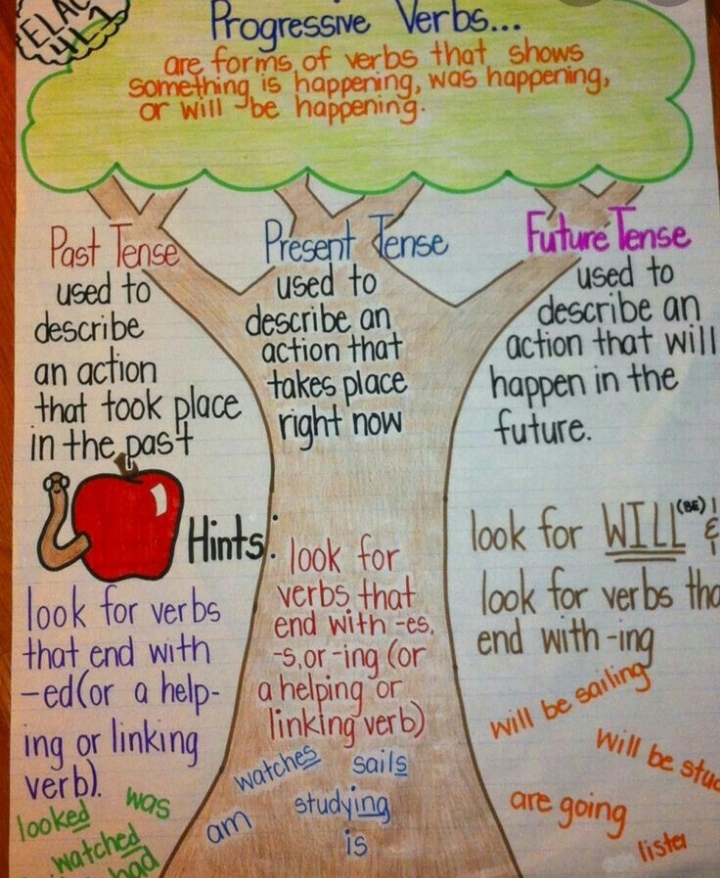 ELAC
4L1
Progressive Verbs...
are forms of verbs that shows
something is happening, was happening,
or will be happening.
Past Tense
used to
describe
an action
that took place
in the past
Present Tense
used to
describe an
action that
takes place
right now
Future Tense
used to
describe an
action that will
happen in the
future.
Hints:
look for verbs
that end with
-ed (or a help-
ing or linking
verb).
looked was
watched
had
look for
verbs that
end with -es,
-s, or -ing (or
a helping or
linking verb)
watches sails
am studying
is
look for WILL (BE) &
look for verbs tha
end with -ing
will be sailing
will be stud
are going
listen